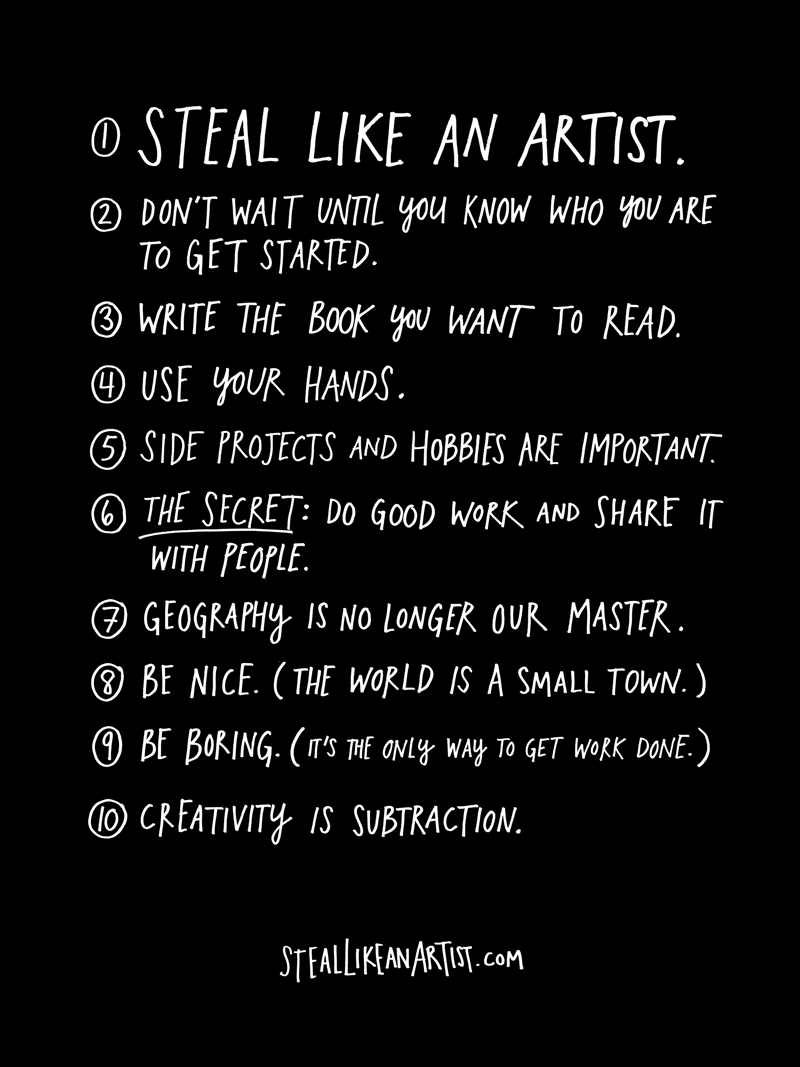 ① STEAL LIKE AN ARTIST.
② DON'T WAIT UNTIL YOU KNOW WHO YOU ARE
TO GET STARTED.
③ WRITE THE BOOK YOU WANT TO READ.
④ USE YOUR HANDS.
⑤ SIDE PROJECTS AND HOBBIES ARE IMPORTANT.
⑥ THE SECRET: DO GOOD WORK AND SHARE IT
WITH PEOPLE.
⑦ GEOGRAPHY IS NO LONGER OUR MASTER.
⑧ BE NICE. (THE WORLD IS A SMALL TOWN.)
⑨ BE BORING. (IT'S THE ONLY WAY TO GET WORK DONE.)
⑩ CREATIVITY IS SUBTRACTION.
STEALLIKEANARTIST.COM